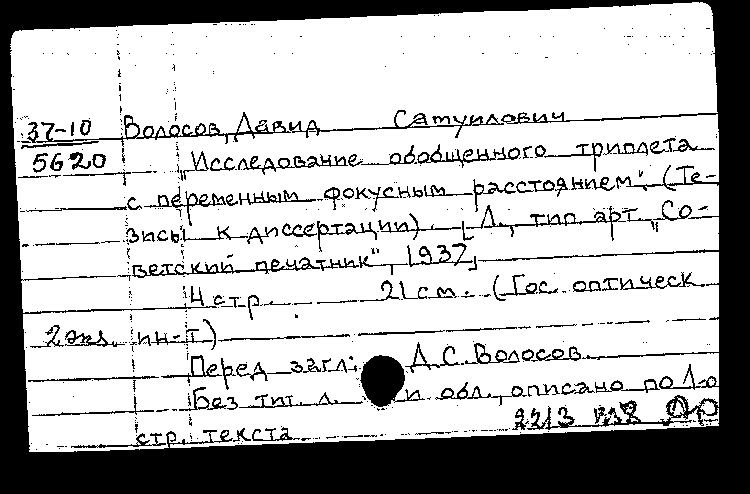 37-10 Волосов, Давид Самуилович
5620 „Исследование обобщенного триплета
с переменным фокусным расстоянием". (Те-
зисы к диссертации). [Л., тип. арт. „Со-
ветский печатник", 1937]
4 стр. 21 см. (Гос. оптическ.
2 экз. ин-т)
Перед загл: Д.С. Волосов.
Без тит. л. и обл., описано по 1-й
стр. текста